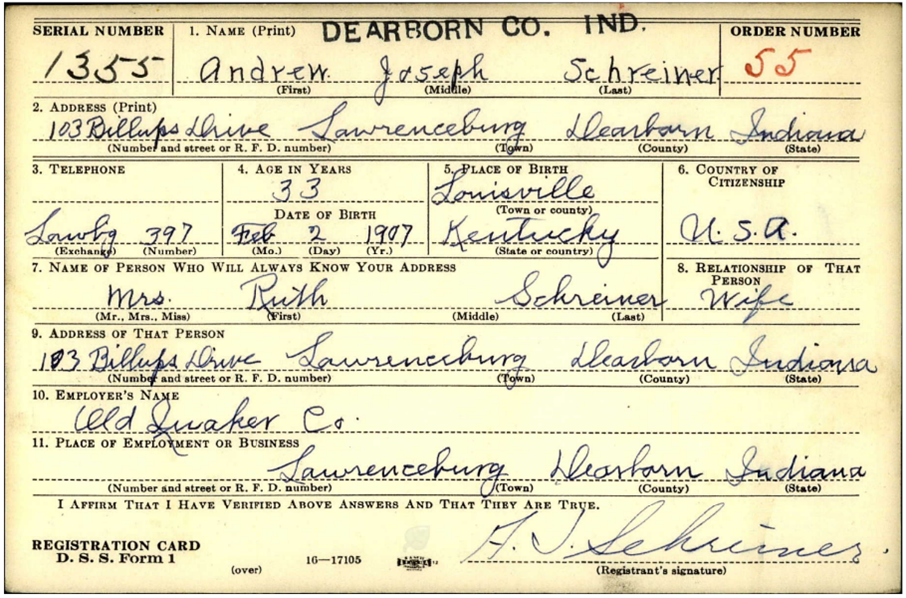 DEARBORN CO. IND.
SERIAL NUMBER 1. NAME (Print) ORDER NUMBER
1355 Andrew Joseph Schreiner 55
(First) (Middle) (Last)
2. ADDRESS (Print)
103 Billups Drive Lawrenceburg Dearborn Indiana
(Number and street or R. F. D. number) (Town) (County) (State)
3. TELEPHONE 4. AGE IN YEARS 5. PLACE OF BIRTH 6. COUNTRY OF CITIZENSHIP
33 Louisville
(Town or county)
DATE OF BIRTH
Lawbg 397 Feb 2 1907 Kentucky U.S.A.
(Exchange) (Number) (Mo.) (Day) (Yr.) (State or country)
7. NAME OF PERSON WHO WILL ALWAYS KNOW YOUR ADDRESS 8. RELATIONSHIP OF THAT PERSON
Mrs. Ruth Schreiner Wife
(Mr., Mrs., Miss) (First) (Middle) (Last)
9. ADDRESS OF THAT PERSON
103 Billups Drive Lawrenceburg Dearborn Indiana
(Number and street or R. F. D. number) (Town) (County) (State)
10. EMPLOYER'S NAME
Old Quaker Co.
11. PLACE OF EMPLOYMENT OR BUSINESS
Lawrenceburg Dearborn Indiana
(Number and street or R. F. D. number) (Town) (County) (State)
I AFFIRM THAT I HAVE VERIFIED ABOVE ANSWERS AND THAT THEY ARE TRUE.
REGISTRATION CARD
D. S. S. Form 1
(over) 16—17105
A. J. Schreiner.
(Registrant's signature)